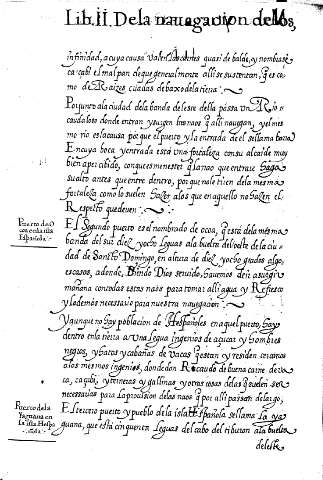 Lib. II. De la nauegaçion de los,
infinidad, a cuya causa valen las carnes quasi de balde, y no mbiase
caçabi el mal pan de que generalmente alli se sustentan, q̃ es co
mo de Raizes cualadas debaxo dela tierra
Por junto ala ciudad dela banda del este della passa un Rio
caudaloso donde entran y surgen las naos q̃ alli nauegan, y el mes
mo rio es la causa por que el puerto y la entrada de el se llama
En cuya boca y entrada esta una fortaleza con su alcaide muy
bien aperçibido, con q̃ es menester q̃ la nao que entrare haga
su alto antes que entre dentro, por que no le tiren de la mesma
fortaleza como lo suelen hazer a los que en aquello no hazen el
Respecto que deuen
El segundo puerto es el nombrado de ocoa, q̃ está dela mesma
banda del sur diez y ocho leguas ala buelta del oeste de la ciu
dad de Santo Domingo, en altura de diez y ocho grados algo
escasos, adonde, siendo Dios seruido, hauemos de ir a surgir
mañana con todas estas naos para tomar alli agua y Refresco
y lo demos necessario para nuestra nauegaçion
Y aunque no hay poblaçion de Hespañoles en aquel puerto, hay
dentro en la tierra a una legua ingenios de açucar y hombres
negros, y hatos y cabañas de vacas q̃ estan y residen çercanos
alos mesmos ingenios, donde dan Recaudo de buena carne de va
ca, caçabi, y terneras y gallinas y otras cosas delas q̃ suelen ser
neçessarias para la prouision delas naos q̃ por alli passan de largo,
El terçero puerto y pueblo de la isla Hespañola se llama la ya
guana, que está cinquenta leguas del cabo del tiburon ala buelta
del este
Puerto d'O
coa en la isla
Española
Puerto de la
Yaguana en
la isla Hespa
ñola